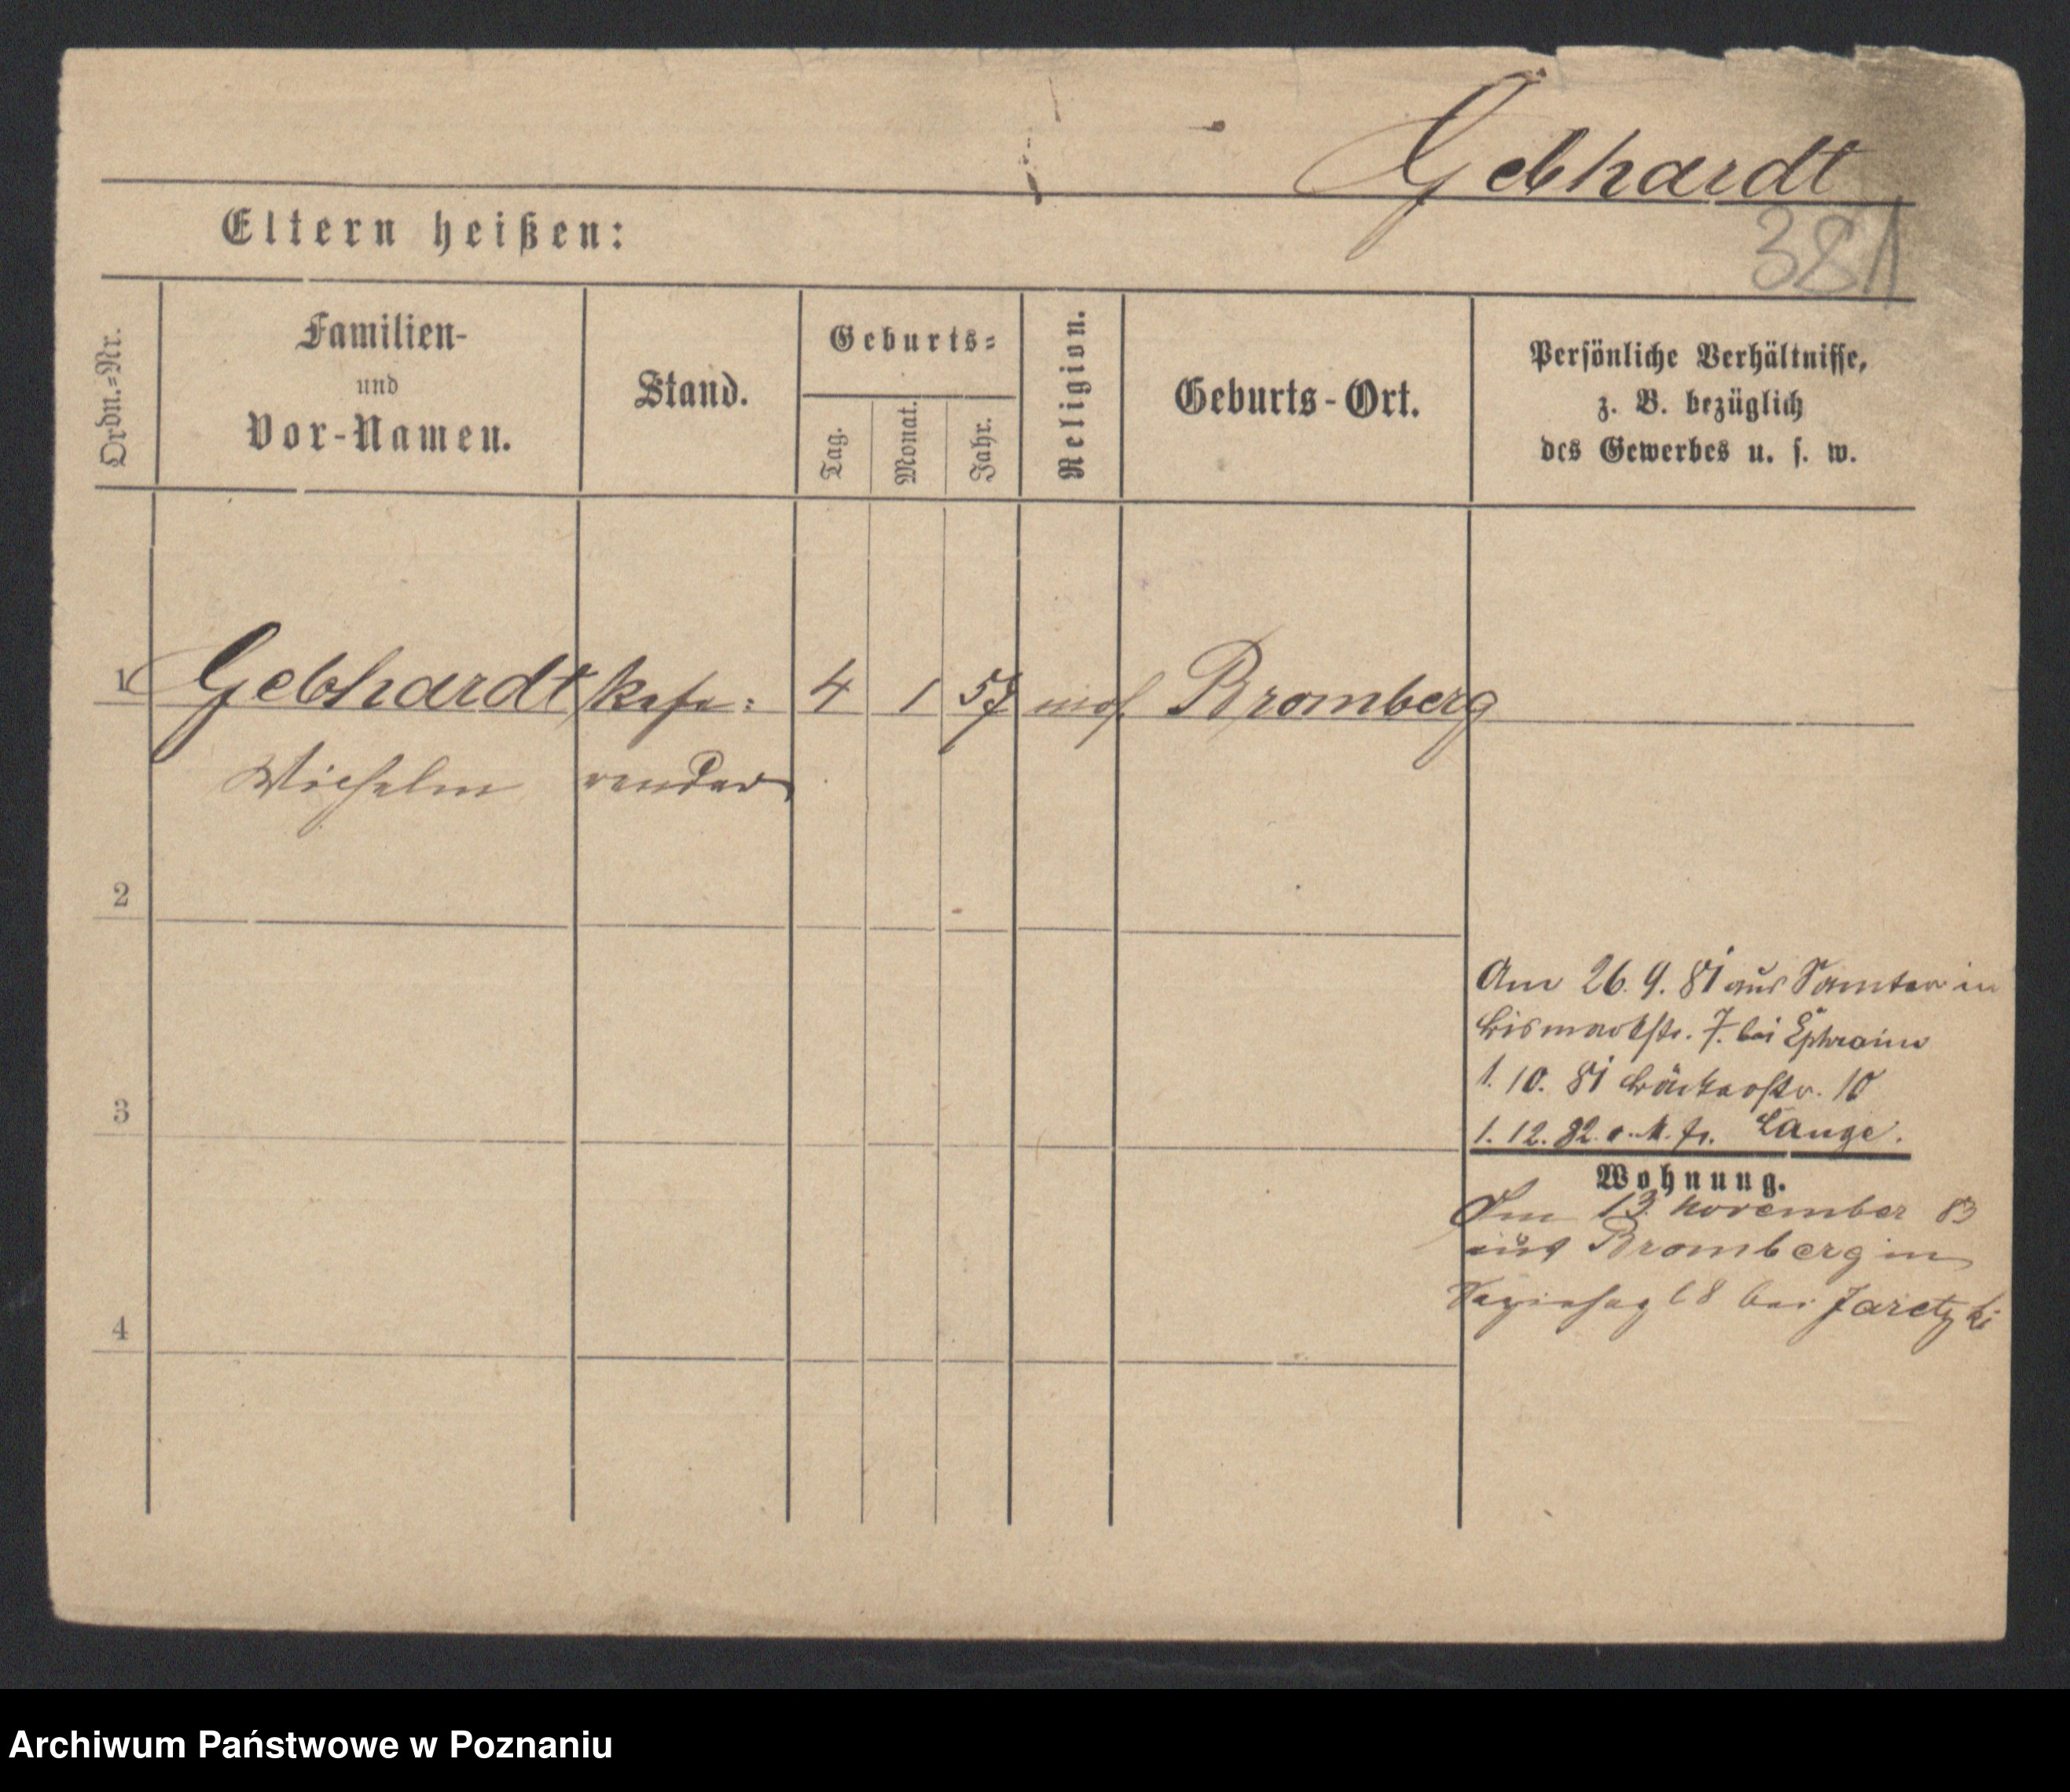 Gebhardt
381
Eltern heißen:
Ordn.=Nr.
Familien-
und
Vor-Namen.
Stand.
Geburts=
Tag.
Monat.
Jahr.
Religion.
Geburts-Ort.
Persönliche Verhältnisse,
z. B. bezüglich
des Gewerbes u. s. w.
1 Gebhardt Refe= 4 1 57 mos. Bromberg
Wilhelm rendar
2
Am 26. 9. 81 aus Samter in
Bismarckstr. 7. bei Ephraim
1. 10. 81 Bäckerstr. 10
3
1. 12. 82. Lange.
Wohnung.
Am 13. November 83
aus Bromberg in
bei Jaretzki
4
Archiwum Państwowe w Poznaniu